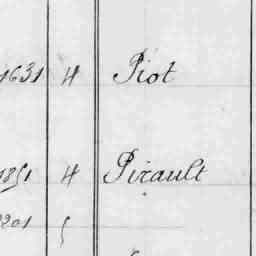 1631 4 Piot
1851 4 Pirault
2201 5